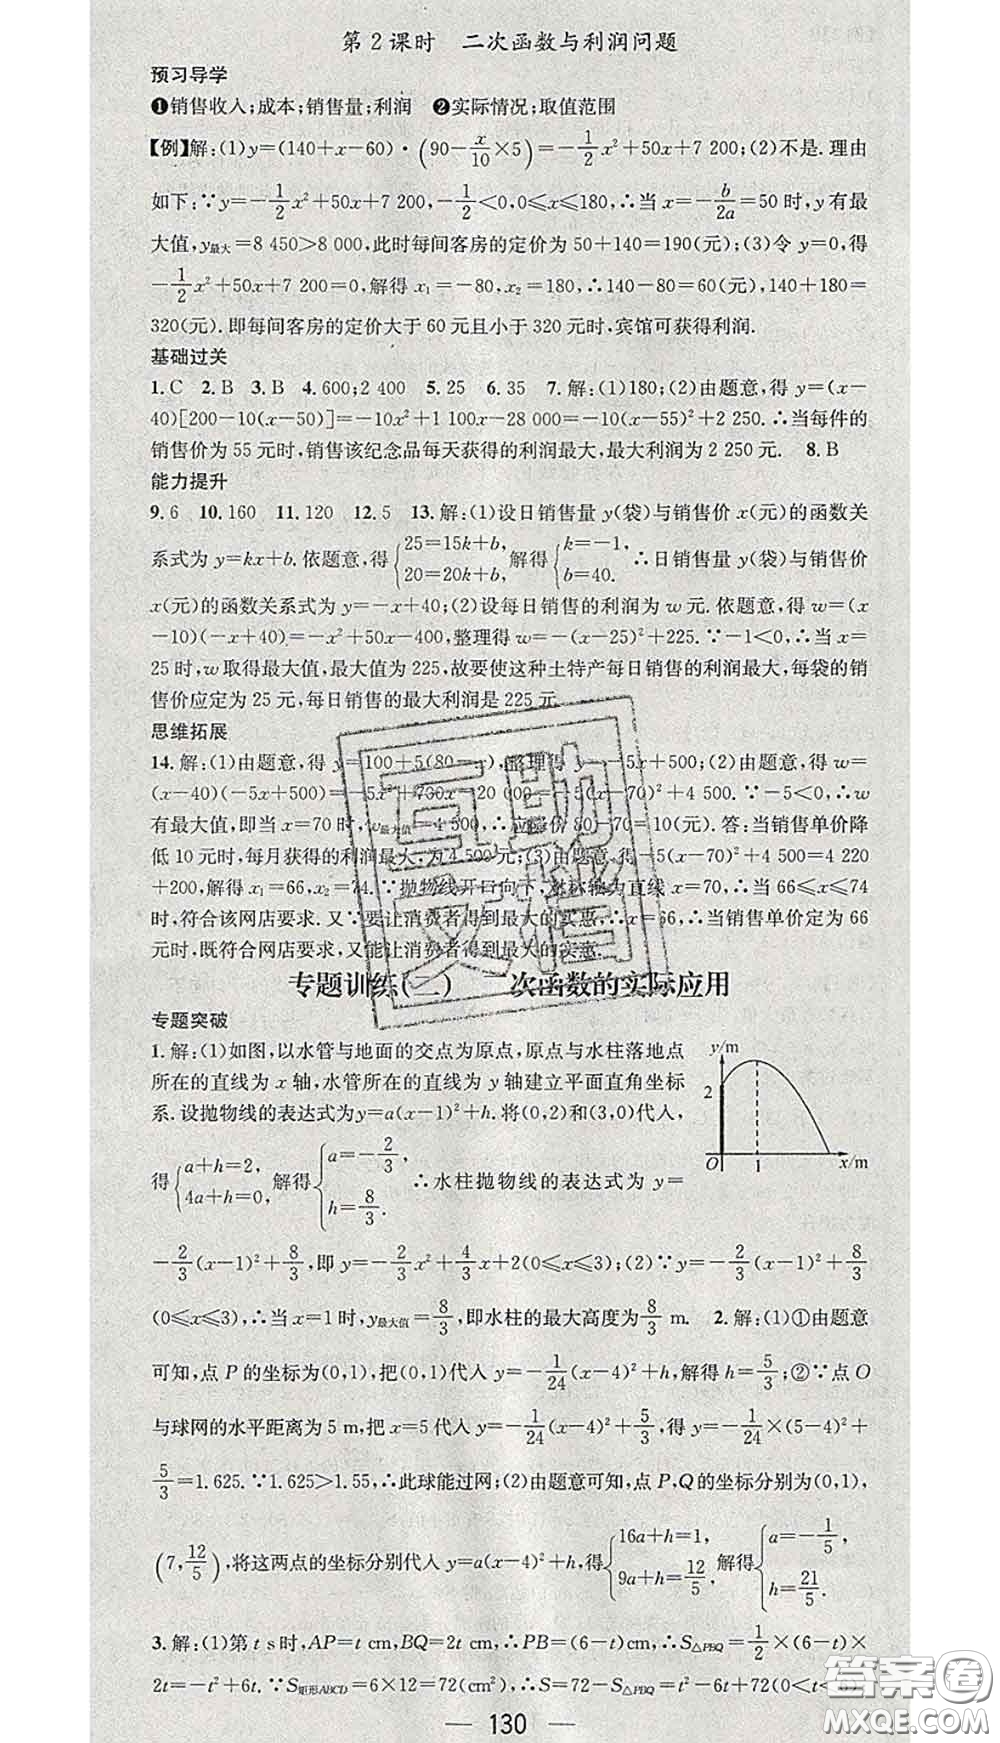 第2课时　二次函数与利润问题
预习导学
❶销售收入;成本;销售量;利润　❷实际情况;取值范围
【例】解:(1)y=(140+x-60)·(90-x/10×5)=-1/2x²+50x+7 200;(2)不是.理由
如下:∵y=-1/2x²+50x+7 200,-1/2<0,0≤x≤180,∴当x=-b/2a=50时,y有最
大值,y最大=8 450>8 000,此时每间客房的定价为50+140=190(元);(3)令y=0,得
-1/2x²+50x+7 200=0,解得x₁=-80,x₂=180,∴140-80=60(元),140+180=
320(元).即每间客房的定价大于60元且小于320元时,宾馆可获得利润.
基础过关
1.C　2.B　3.B　4.600;2 400　5.25　6.35　7.解:(1)180;(2)由题意,得y=(x-
40)[200-10(x-50)]=-10x²+1 100x-28 000=-10(x-55)²+2 250.∴当每件的
销售价为55元时,销售该纪念品每天获得的利润最大,最大利润为2 250元.　8.B
能力提升
9.6　10.160　11.120　12.5　13.解:(1)设日销售量y(袋)与销售价x(元)的函数关
系式为y=kx+b.依题意,得{25=15k+b,20=20k+b,解得{k=-1,b=40.∴日销售量y(袋)与销售价
x(元)的函数关系式为y=-x+40;(2)设每日销售的利润为w元.依题意,得w=(x
-10)(-x+40)=-x²+50x-400,整理得w=-(x-25)²+225.∵-1<0,∴当x=
25时,w取得最大值,最大值为225,故要使这种土特产每日销售的利润最大,每袋的销
售价应定为25元,每日销售的最大利润是225元.
思维拓展
14.解:(1)由题意,得y=100+5(80-x),整理得y=-5x+500;(2)由题意,得w=
(x-40)(-5x+500)=-5x²+700x-20 000=-5(x-70)²+4 500.∵-5<0,∴w
有最大值,即当x=70时,w最大值=4 500,∴应降价80-70=10(元).答:当销售单价降
低10元时,每月获得的利润最大,为4 500元;(3)由题意,得-5(x-70)²+4 500=4 220
+200,解得x₁=66,x₂=74.∵抛物线开口向下,对称轴为直线x=70,∴当66≤x≤74
时,符合该网店要求.又∵要让消费者得到最大的实惠,∴x=66,∴当销售单价定为66
元时,既符合网店要求,又能让消费者得到最大的实惠.
专题训练(二)　二次函数的实际应用
专题突破
1.解:(1)如图,以水管与地面的交点为原点,原点与水柱落地点
所在的直线为x轴,水管所在的直线为y轴建立平面直角坐标
系.设抛物线的表达式为y=a(x-1)²+h.将(0,2)和(3,0)代入,
得{a+h=2,4a+h=0,解得{a=-2/3,h=8/3.∴水柱抛物线的表达式为y=
y/m
2
O　1　x/m
-2/3(x-1)²+8/3,即y=-2/3x²+4/3x+2(0≤x≤3);(2)∵y=-2/3(x-1)²+8/3
(0≤x≤3),∴当x=1时,y最大值=8/3,即水柱的最大高度为8/3 m.　2.解:(1)①由题意
可知,点P的坐标为(0,1),把(0,1)代入y=-1/24(x-4)²+h,解得h=5/3;②∵点O
与球网的水平距离为5 m,把x=5代入y=-1/24(x-4)²+5/3,得y=-1/24×(5-4)²+
5/3=1.625.∵1.625>1.55,∴此球能过网;(2)由题意可知,点P,Q的坐标分别为(0,1),
(7,12/5),将这两点的坐标分别代入y=a(x-4)²+h,得{16a+h=1,9a+h=12/5,解得{a=-1/5,h=21/5.
3.解:(1)第t s时,AP=t cm,BQ=2t cm,∴PB=(6-t)cm,∴S△PBQ=1/2×(6-t)×
2t=-t²+6t.∵S矩形ABCD=6×12=72(cm²),∴S=72-S△PBQ=t²-6t+72(0<t<6);
130
互助文档
答案卷
MXQE.COM